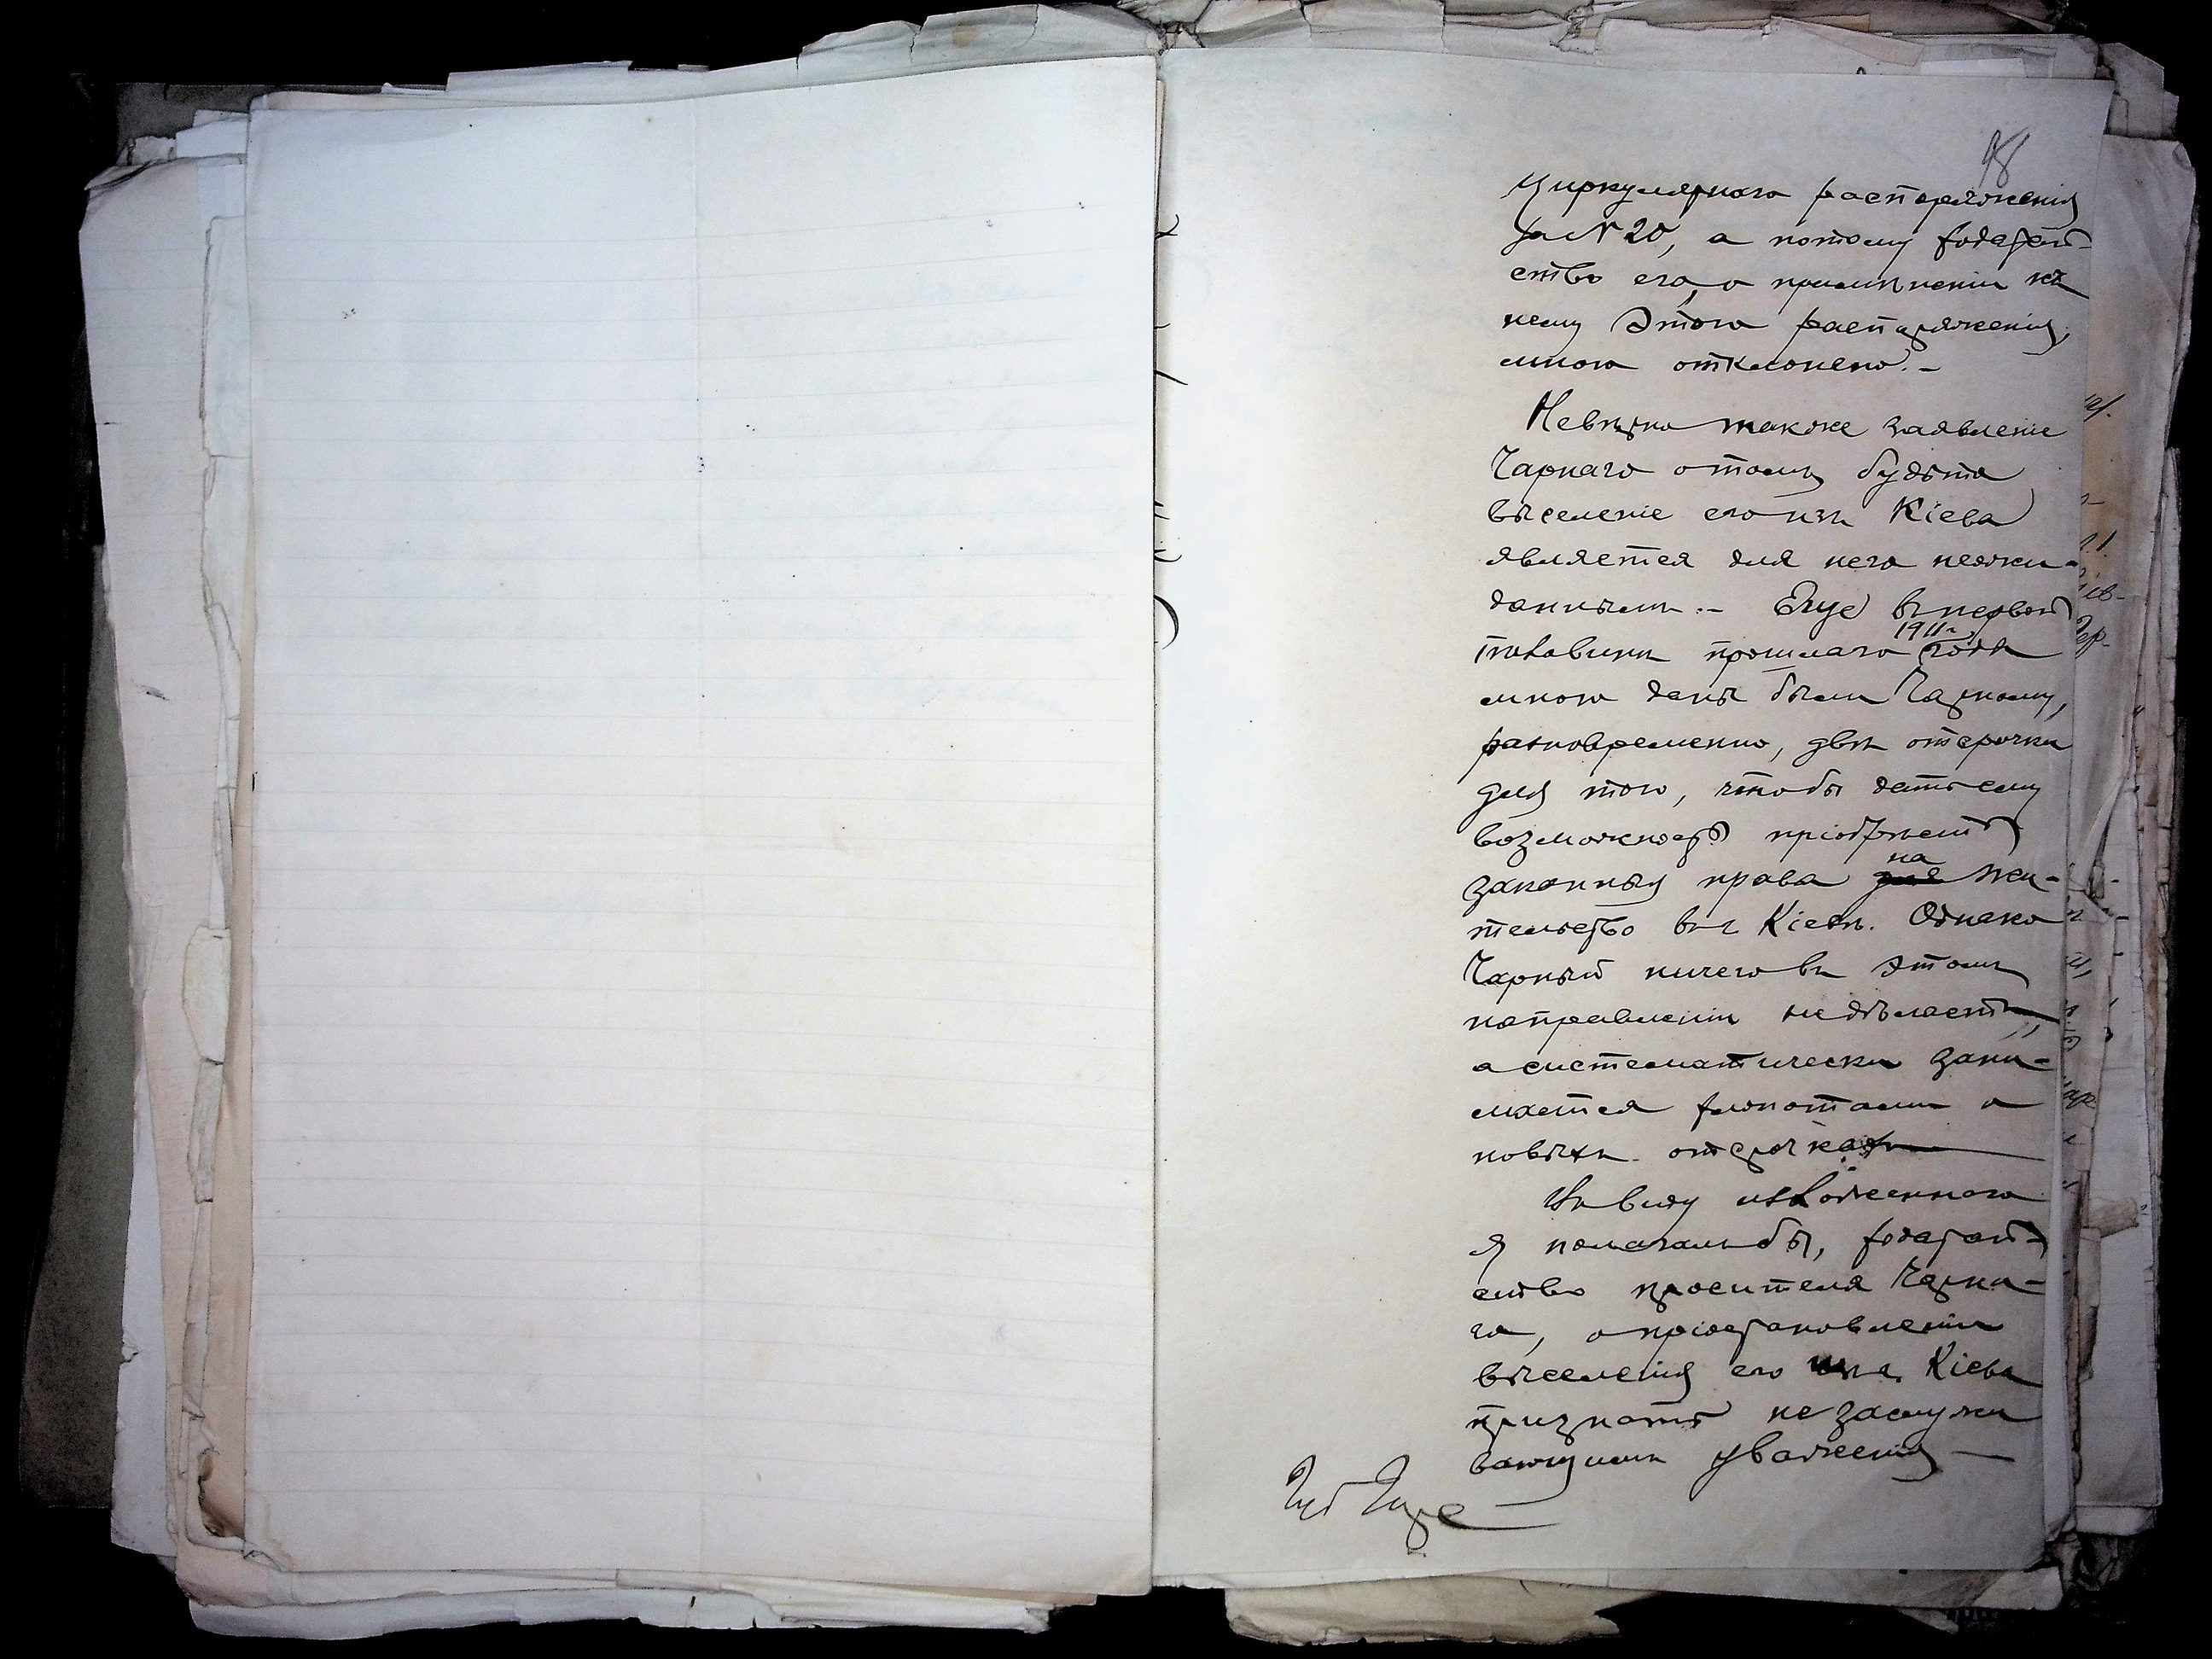 98
циркулярнаго распоряженія
за № 20, а потому ходатай-
ство его, о примѣненіи къ
нему этого распоряженія,
мною отклонено.-
Невѣрно также заявленіе
Чарнаго о томъ, будьто
выселеніе его изъ Кіева
является для него неожи-
даннымъ.- Еще въ первой
половинѣ прошлаго 1911 г. года
мною даны были Чарному,
разновременно, двѣ отсрочки
для того, чтобы дать ему
возможность пріобрѣсть
законныя права для на жи-
тельство въ г. Кіевѣ. Однако
Чарный ничего въ этомъ
направленіи не дѣлаетъ,
а систематически зани-
мается хлопотами о
новыхъ отсрочкахъ
Въ виду изложеннаго
я полагалъ бы, ходатай-
ство просителя Чарна-
го, о пріостановленіи
выселенія его изъ г. Кіева
признать не заслужи
вающимъ уваженія